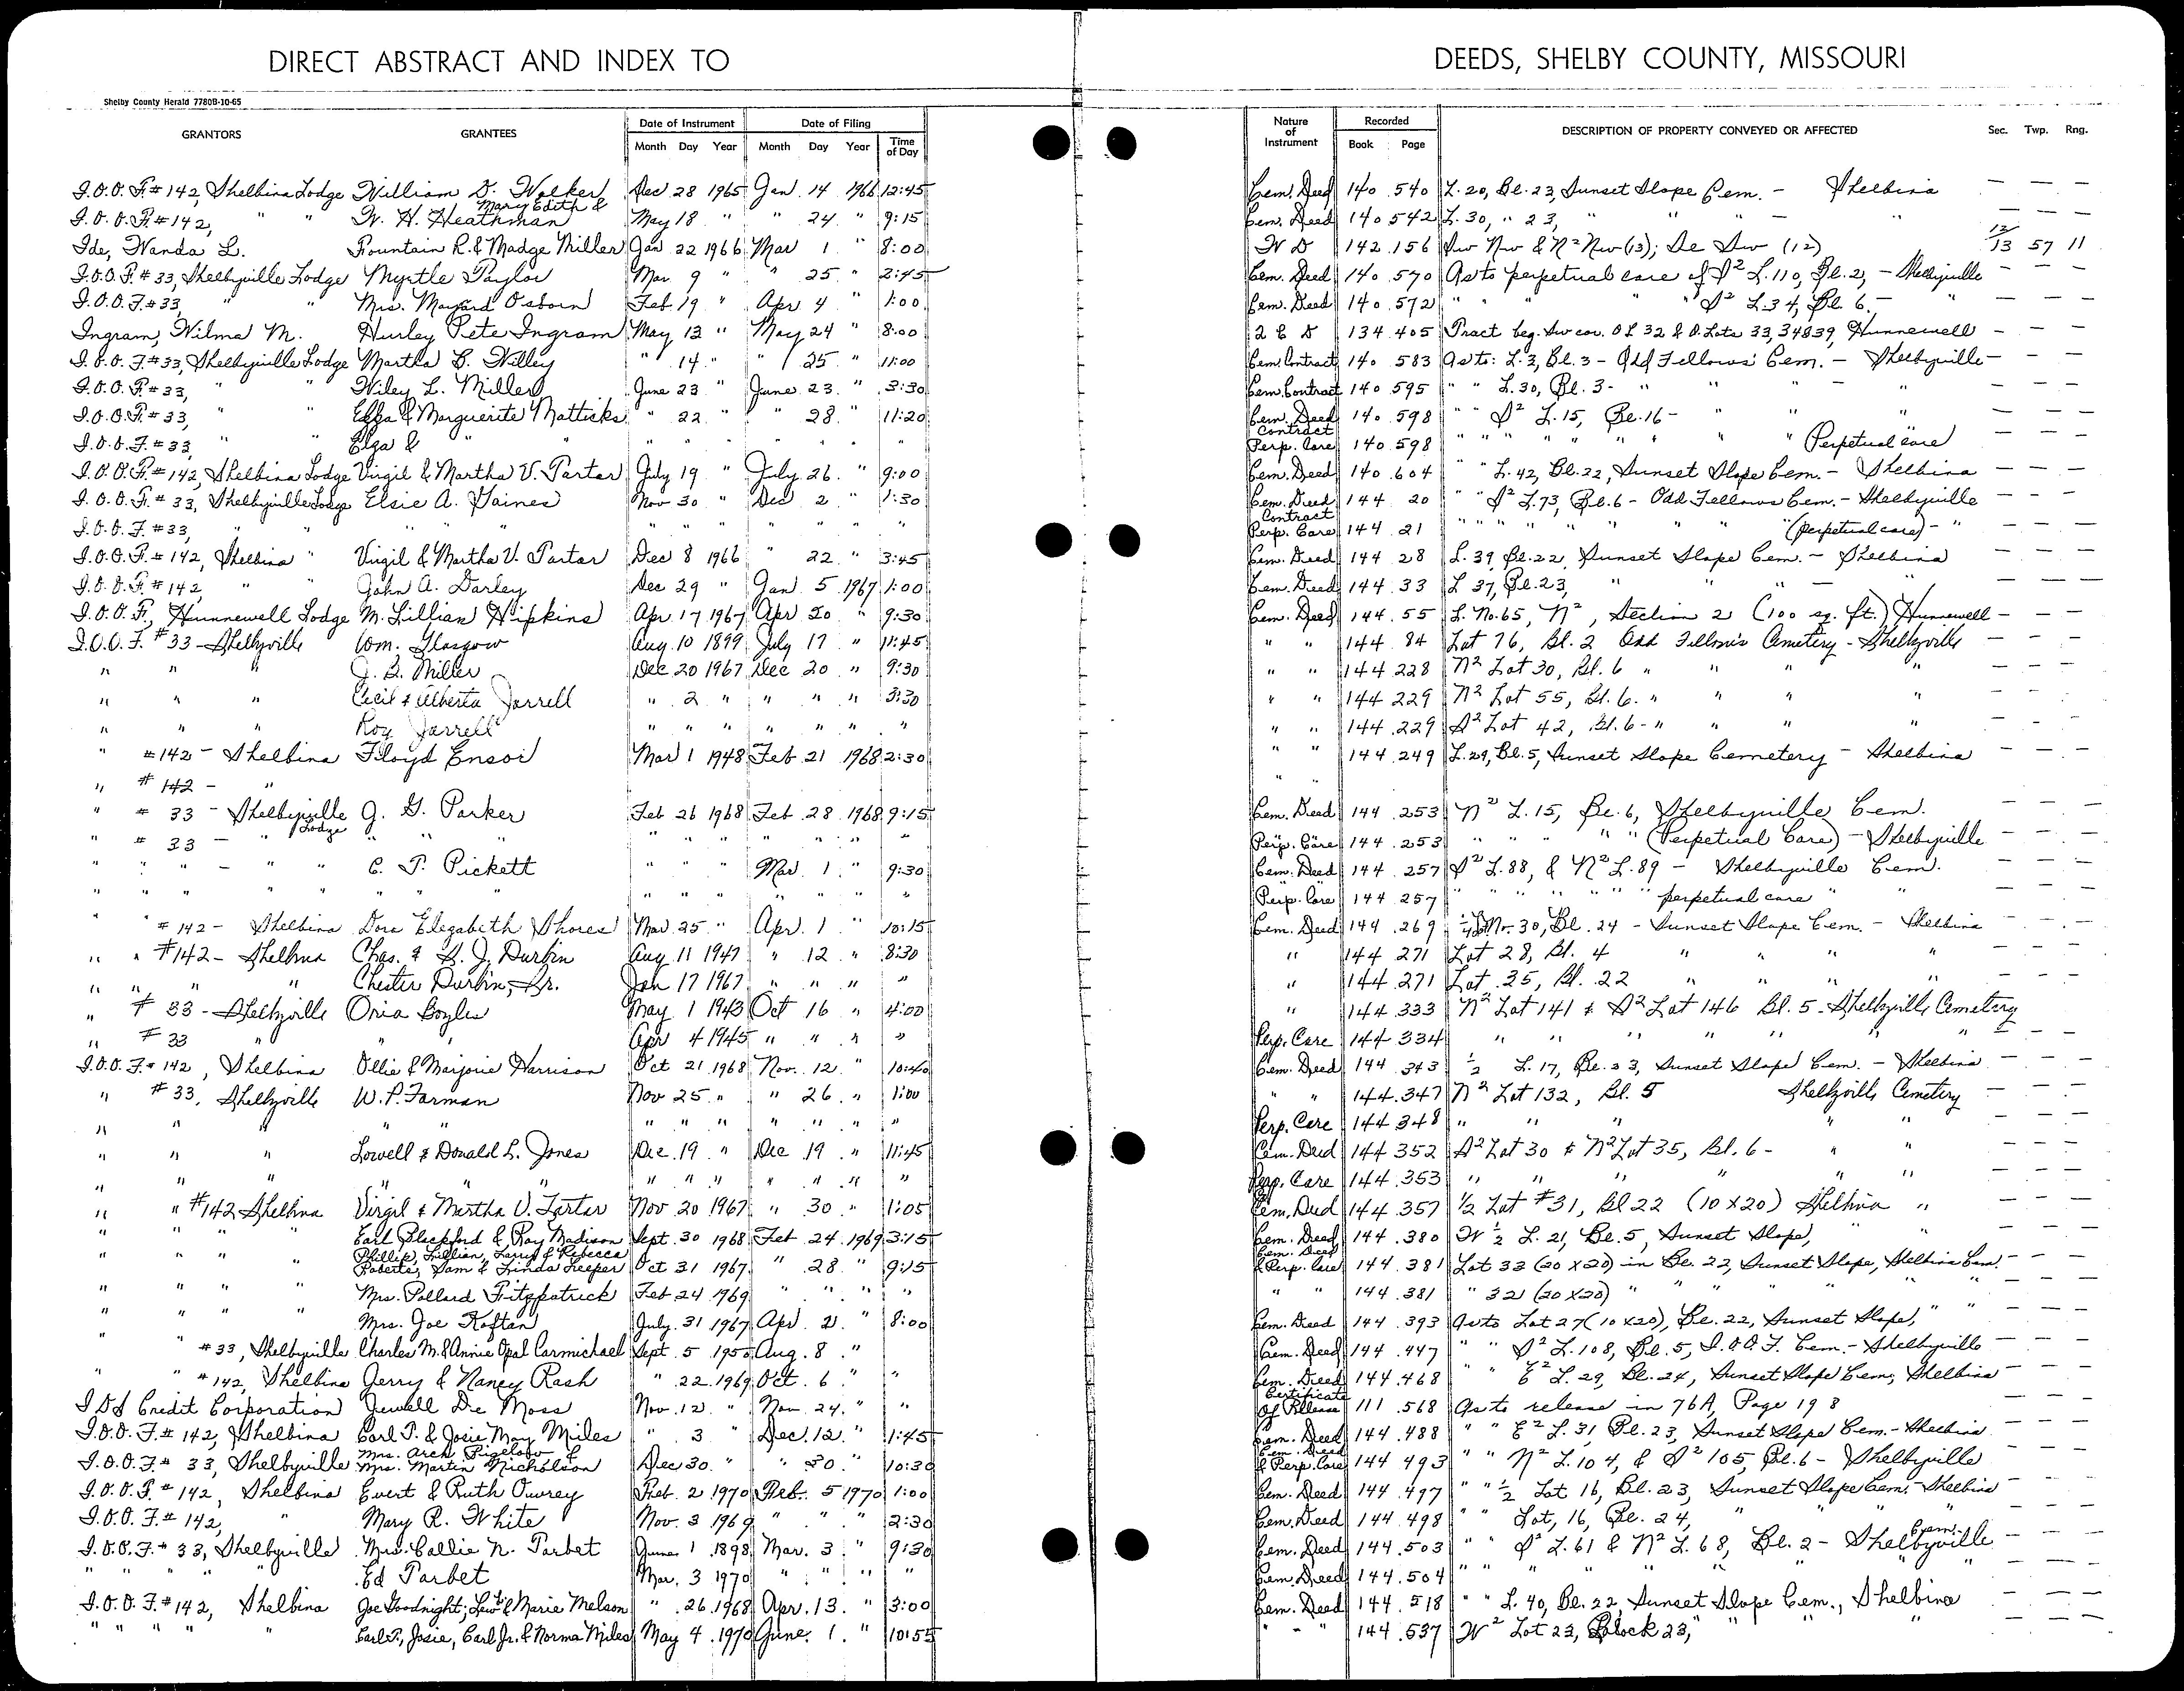 DIRECT ABSTRACT AND INDEX TO DEEDS, SHELBY COUNTY, MISSOURI
Shelby County Herald 7780B-10-65
GRANTORS GRANTEES Date of Instrument Date of Filing Nature of Instrument Recorded DESCRIPTION OF PROPERTY CONVEYED OR AFFECTED Sec. Twp. Rng.
Month Day Year Month Day Year Time of Day Book Page
I.O.O.F. # 142, Shelbina Lodge William D. Walker Dec 28 1965 Jan. 14 1966 12:45 Cem. Deed 140 540 L. 20, Bl. 23, Sunset Slope Cem. - Shelbina — — —
I.O.O.F. # 142, " " Mary Edith & W. H. Heathman May 18 " " 24 " 9:15 Cem. Deed 140 542 L. 30, " 23, " " " — " — — —
Ide, Wanda L. Fountain R. & Madge Miller Jan 22 1966 Mar 1 " 8:00 W D 142 156 Sw Nw & N² Nw (13); Se Sw (12) 12/13 57 11
I.O.O.F. # 33, Shelbyville Lodge Myrtle Taylor Mar 9 " " 25 " 2:45 Cem. Deed 140 570 As to perpetual care of S² L. 110, Bl. 2, - Shelbyville — — —
I.O.O.F. # 33, " " Mrs. Maynard Osborn Feb. 19 " Apr 4 " 1:00 Cem. Deed 140 572 " " " " S² L. 34, Bl. 6. - " — — —
Ingram, Wilma M. Hurley Pete Ingram May 12 " May 24 " 8:00 Q C D 134 405 Tract beg. Sw cor. OL 32 & O. Lots 33, 34 & 39, Hunnewell — — —
I.O.O.F. # 33, Shelbyville Lodge Martha B. Willey " 14 " " 25 " 11:00 Cem. Contract 140 583 As to: L. 3, Bl. 3 - Odd Fellows' Cem. - Shelbyville — — —
I.O.O.F. # 33, " " Wiley L. Miller June 23 " June 23 " 3:30 Cem. Contract 140 595 " " L. 30, Bl. 3 - " " " — — —
I.O.O.F. # 33, " " Elga & Marguerite Matticks " 22 " " 28 " 11:20 Cem. Deed 140 598 " " S² L. 15, Bl. 16 - " " " — — —
I.O.O.F. # 33, " " Elga & " " " " " " " " Contract Perp. Care 140 598 " " " " " " " " Perpetual care — — —
I.O.O.F. # 142, Shelbina Lodge Virgil & Martha V. Tartar July 19 " July 26 " 9:00 Cem. Deed 140 604 " " L. 42, Bl. 22, Sunset Slope Cem. - Shelbina — — —
I.O.O.F. # 33, Shelbyville Lodge Elsie A. Gaines Nov 30 " Dec 2 " 1:30 Cem. Deed 144 20 " " S² L. 73, Bl. 6 - Odd Fellows Cem. - Shelbyville — — —
I.O.O.F. # 33, " " " " " " " " " " " Contract Perp. Care 144 21 " " " " " " " " (perpetual care) - " — — —
I.O.O.F. # 142, Shelbina " Virgil & Martha V. Tartar Dec 8 1966 " 22 " 3:45 Cem. Deed 144 28 L. 39, Bl. 22, Sunset Slope Cem. - Shelbina — — —
I.O.O.F. # 142, " " John A. Darley Dec 29 " Jan. 5 1967 1:00 Cem. Deed 144 33 L 37, Bl. 23, " " " — " — — —
I.O.O.F., Hunnewell Lodge M. Lillian Hipkins Apr 17 1967 Apr 20 " 9:30 Cem. Deed 144 55 L. No. 65, N², Section 2 (100 sq. ft.) Hunnewell — — —
I.O.O.F. # 33 - Shelbyville Wm. Glasgow Aug. 10 1899 July 17 " 11:45 " " 144 84 Lot 76, Bl. 2 Odd Fellows Cemetery - Shelbyville — — —
" " " J. B. Miller Dec 20 1967 Dec 20 " 9:30 " " 144 228 N² Lot 30, Bl. 6 " " " — — —
" " " Cecil & Alberta Jarrell " 2 " " " " 3:30 " " 144 229 N² Lot 55, Bl. 6. " " " " — — —
" " " Roy Jarrell " " " " " " " " " 144 229 S² Lot 42, Bl. 6 - " " " " — — —
" # 142 - Shelbina Floyd Ensor Mar 1 1948 Feb 21 1968 2:30 " " 144 249 L. 29, Bl. 5, Sunset Slope Cemetery - Shelbina — — —
" # 142 - " " "
" # 33 - Shelbyville Lodge J. G. Parker Feb 26 1968 Feb. 28 1968 9:15 Cem. Deed 144 253 N² L. 15, Bl. 6, Shelbyville Cem. — — —
" # 33 - " " " " " " " " " " Perp. Care 144 253 " " " " " (Perpetual Care) - Shelbyville — — —
" " " - " " C. T. Pickett " " " Mar. 1 " 9:30 Cem. Deed 144 257 S² L. 88, & N² L. 89 - Shelbyville Cem. — — —
" " " " " " " " " " " " " " Perp. Care 144 257 " " " " " " perpetual care " " — — —
" " # 142 - Shelbina Dora Elizabeth Shores Mar 25 " Apr. 1 " 10:15 Cem. Deed 144 269 No. 30, Bl. 24 - Sunset Slope Cem. - Shelbina — — —
" " # 142 - Shelbina Chas. & B. J. Durbin Aug 11 1947 " 12 " 8:30 " 144 271 Lot 28, Bl. 4 " " " " — — —
" " " " Chester Durbin, Sr. Jan 17 1967 " " " " " 144 271 Lot 25, Bl. 22 " " " " — — —
" # 33 - Shelbyville Oria Boyles May 1 1943 Oct 16 " 4:00 " 144 333 N² Lot 141 & S² Lot 146 Bl. 5 - Shelbyville Cemetery
" # 33 " " " Apr 4 1945 " " " " Perp. Care 144 334 " " " " " " " — — —
I.O.O.F. # 142, Shelbina Ollie & Marjorie Harrison Oct 21 1968 Nov. 12 " 10:40 Cem. Deed 144 343 ½ L. 17, Bl. 23, Sunset Slope Cem. - Shelbina — — —
" # 33, Shelbyville W. P. Farman Nov 25 " " 26 " 1:00 " " 144 347 N² Lot 132, Bl. 5 Shelbyville Cemetery — — —
" " " " " " " " " " " Perp. Care 144 348 " " " " " — — —
" " " Lowell & Donald L. Jones Dec. 19 " Dec 19 " 11:45 Cem. Deed 144 352 S² Lot 30 & N² Lot 35, Bl. 6 - " " — — —
" " " " " " " " " " " " Perp. Care 144 353 " " " " " " — — —
" " # 142 Shelbina Virgil & Martha V. Tartar Nov 20 1967 " 30 " 1:05 Cem. Deed 144 357 ½ Lot # 31, Bl 22 (10 X 20) Shelbina " — — —
" " " " Earl Blackford & Ray Madison Sept. 30 1968 Feb 24 1969 3:15 Cem. Deed 144 380 W ½ L. 21, Bl. 5, Sunset Slope, " " — — —
" " " " Phillip, Lillian, Larry & Rebecca Roberts, Sam & Linda Leeper Oct 31 1967 " 28 " 9:15 Cem. Deed & Perp. Care 144 381 Lot 33 (20 X 20) in Bl. 22, Sunset Slope, Shelbina Cem. — — —
" " " " Mrs. Pollard Fitzpatrick Feb 24 1969 " " " " " " 144 381 " 32 (20 X 20) " " " " " " — — —
" " " " Mrs. Joe Koftan July 31 1967 Apr 2 " 8:00 Cem. Deed 144 393 As to Lot 27 (10 X 20), Bl. 22, Sunset Slope, " " — — —
" " # 33, Shelbyville Charles M. & Annie Opal Carmichael Sept. 5 1950 Aug. 8 " Cem. Deed 144 447 " " S² L. 108, Bl. 5, I.O.O.F. Cem. - Shelbyville — — —
" " # 142, Shelbina Jerry & Nancy Rash " 22 1969 Oct. 6 " " Cem. Deed 144 468 " " E² L. 29, Bl. 24, Sunset Slope Cem; Shelbina — — —
IDS Credit Corporation Jewell Dee Moss Nov. 12 " Nov 24 " " Certificate Of Release 111 568 As to release in 76A, Page 198 — — —
I.O.O.F. # 142, Shelbina Earl T. & Josie May Miles " 3 " Dec. 12 " 1:45 Cem. Deed 144 488 " " E² L. 31, Bl. 23, Sunset Slope Cem. - Shelbina — — —
I.O.O.F. # 33, Shelbyville Mrs. Arch Bigelow & Mrs. Martin Nicholson Dec 30 " " 30 " 10:30 Cem. Deed & Perp. Care 144 493 " " N² L. 104, & S² 105, Bl. 6 - Shelbyville — — —
I.O.O.F. # 142, Shelbina Evert & Ruth Ourey Feb. 2 1970 Feb. 5 1970 1:00 Cem. Deed 144 497 " " ½ Lot 16, Bl. 23, Sunset Slope Cem. - Shelbina — — —
I.O.O.F. # 142, " Mary R. White Nov. 3 1969 " " " 2:30 Cem. Deed 144 498 " " Lot, 16, Bl. 24, " " " " — — —
I.O.O.F. # 33, Shelbyville Mrs. Callie N. Tarbet June 1 1898 Mar. 3 " 9:30 Cem. Deed 144 503 " " S² L. 61 & N² L. 68, Bl. 2 - Shelbyville Cem. — — —
" " " " Ed Tarbet Mar. 3 1970 " " " " Cem. Deed 144 504 " " " " " " " — — —
I.O.O.F. # 142, Shelbina Joe Goodnight; Lew & Marie Melson " 26 1968 Apr. 13 " 3:00 Cem. Deed 144 518 " " L. 40, Bl. 22, Sunset Slope Cem., Shelbina — — —
" " " " " Earl T., Josie, Earl Jr. & Norma Miles May 4 1970 June 1 " 10:55 " " " 144 537 W² Lot 23, Block 23, " " " — — —